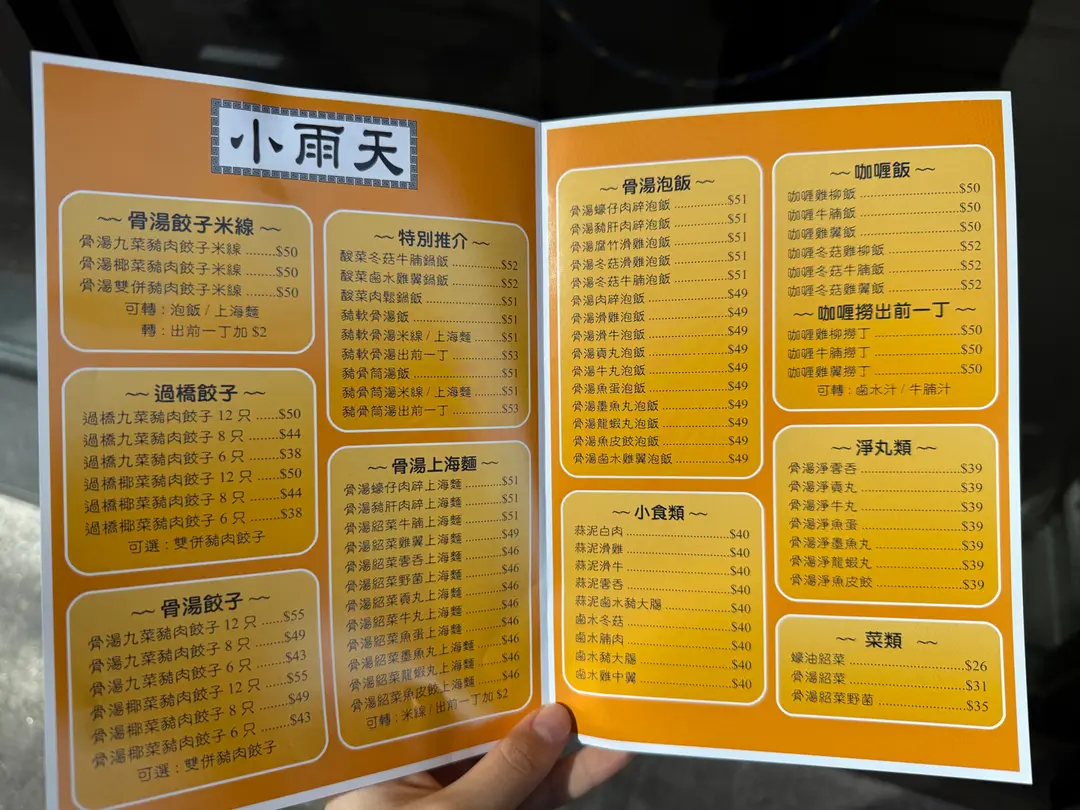 小雨天
～ 骨湯餃子米線 ～
骨湯九菜豬肉餃子米線 ......$50
骨湯椰菜豬肉餃子米線 ......$50
骨湯雙併豬肉餃子米線 ......$50
可轉：泡飯 / 上海麵
轉：出前一丁加 $2
～ 過橋餃子 ～
過橋九菜豬肉餃子 12 只 ......$50
過橋九菜豬肉餃子 8 只 ......$44
過橋九菜豬肉餃子 6 只 ......$38
過橋椰菜豬肉餃子 12 只 ......$50
過橋椰菜豬肉餃子 8 只 ......$44
過橋椰菜豬肉餃子 6 只 ......$38
可選：雙併豬肉餃子
～ 骨湯餃子 ～
骨湯九菜豬肉餃子 12 只 ......$55
骨湯九菜豬肉餃子 8 只 ......$49
骨湯九菜豬肉餃子 6 只 ......$43
骨湯椰菜豬肉餃子 12 只 ......$55
骨湯椰菜豬肉餃子 8 只 ......$49
骨湯椰菜豬肉餃子 6 只 ......$43
可選：雙併豬肉餃子
～ 特別推介 ～
酸菜冬菇牛腩鍋飯 ......$52
酸菜鹵水雞翼鍋飯 ......$52
酸菜肉鬆鍋飯 ......$51
豬軟骨湯飯 ......$51
豬軟骨湯米線 / 上海麵 ......$51
豬軟骨湯出前一丁 ......$53
豬骨筒湯飯 ......$51
豬骨筒湯米線 / 上海麵 ......$51
豬骨筒湯出前一丁 ......$53
～ 骨湯上海麵 ～
骨湯蠔仔肉碎上海麵 ......$51
骨湯豬肝肉碎上海麵 ......$51
骨湯紹菜牛腩上海麵 ......$51
骨湯紹菜雞翼上海麵 ......$49
骨湯紹菜雲吞上海麵 ......$46
骨湯紹菜野菌上海麵 ......$46
骨湯紹菜貢丸上海麵 ......$46
骨湯紹菜牛丸上海麵 ......$46
骨湯紹菜魚蛋上海麵 ......$46
骨湯紹菜墨魚丸上海麵 ......$46
骨湯紹菜龍蝦丸上海麵 ......$46
骨湯紹菜魚皮餃上海麵 ......$46
可轉：米線 / 出前一丁加 $2
～ 骨湯泡飯 ～
骨湯蠔仔肉碎泡飯 ......$51
骨湯豬肝肉碎泡飯 ......$51
骨湯腐竹滑雞泡飯 ......$51
骨湯冬菇滑雞泡飯 ......$51
骨湯冬菇牛腩泡飯 ......$51
骨湯肉碎泡飯 ......$49
骨湯滑雞泡飯 ......$49
骨湯滑牛泡飯 ......$49
骨湯貢丸泡飯 ......$49
骨湯牛丸泡飯 ......$49
骨湯魚蛋泡飯 ......$49
骨湯墨魚丸泡飯 ......$49
骨湯龍蝦丸泡飯 ......$49
骨湯魚皮餃泡飯 ......$49
骨湯鹵水雞翼泡飯 ......$49
～ 小食類 ～
蒜泥白肉 ......$40
蒜泥滑雞 ......$40
蒜泥滑牛 ......$40
蒜泥雲吞 ......$40
蒜泥鹵水豬大腸 ......$40
鹵水冬菇 ......$40
鹵水腩肉 ......$40
鹵水豬大腸 ......$40
鹵水雞中翼 ......$40
～ 咖喱飯 ～
咖喱雞柳飯 ......$50
咖喱牛腩飯 ......$50
咖喱雞翼飯 ......$50
咖喱冬菇雞柳飯 ......$52
咖喱冬菇牛腩飯 ......$52
咖喱冬菇雞翼飯 ......$52
～ 咖喱撈出前一丁 ～
咖喱雞柳撈丁 ......$50
咖喱牛腩撈丁 ......$50
咖喱雞翼撈丁 ......$50
可轉：鹵水汁 / 牛腩汁
～ 淨丸類 ～
骨湯淨雲吞 ......$39
骨湯淨貢丸 ......$39
骨湯淨牛丸 ......$39
骨湯淨魚蛋 ......$39
骨湯淨墨魚丸 ......$39
骨湯淨龍蝦丸 ......$39
骨湯淨魚皮餃 ......$39
～ 菜類 ～
蠔油紹菜 ......$26
骨湯紹菜 ......$31
骨湯紹菜野菌 ......$35